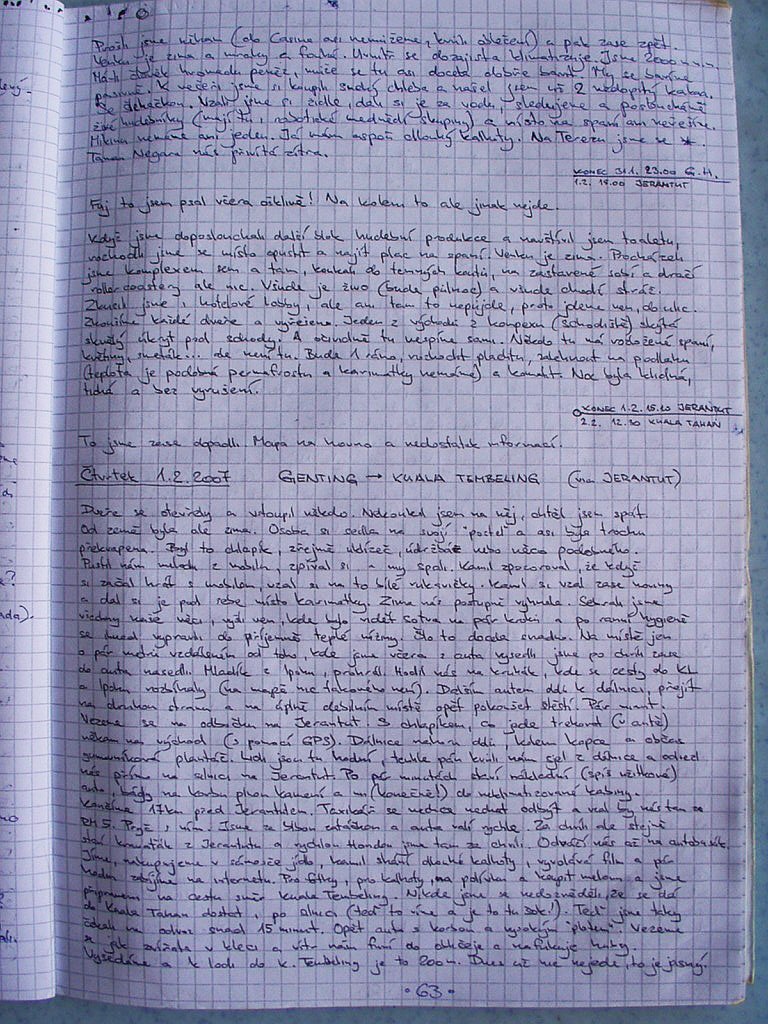 Prošli jsme nikam (do Casina asi nemůžeme, kvůli oblečení) a pak zase zpět.
Venku je zima a mraky a fouká. Uvnitř se dozajista klimatizuje. Jsme 2000 m n.m.
Má-li člověk hromadu peněz, může se tu asi docela dobře bavit. My se bavíme
pasivně. K večeři jsme si koupili suchý chleba a našel jsem už 2 nedopitý
se slehačkou. Vzali jsme si židle, dali si je za vodu, sledujeme a posloucháme
živé hudebníky (mají tu robotické medvědí skupiny) a místo na spaní ani neřešíme.
Mikinu nemáme ani jeden. Já mám aspoň dlouhý kalhoty. Na Terezu jsme se
Taman Negara nás přivítá zítra.
KONEC 31.1. 23.00 G.H.
1.2. 15.00 JERANTUT
Fuj to jsem psal včera ošklivě! Na kolem to ale jinak nejde.
Když jsme doposlouchali další blok hudební produkce a navštívil jsem toaletu,
rozhodli jsme se místo opustit a najít plac na spaní. Venku je zima. Procházeli
jsme komplexem sem a tam, koukali do temných koutů, na zastavené sobí a dračí
rollercoastery ale nic. Všude je živo (bude půlnoc) a všude chodí stráž.
Zkusili jsme i hotelové lobby, ale ani tam to nepůjde, proto jdeme ven, do ulic.
Zkoušíme každé dveře a vyřešeno. Jeden z východů z komplexu (schodiště) skýtá
skvělý úkryt pod schody. A očividně tu nespíme sami. Někdo tu má rozložené spaní,
květiny, smeták... ale není tu. Bude 1 ráno, rozhodit pláštěn, zalehnout na podlahu
(teplota je podobná permafrostu a karimatky nemáme) a kanalit. Noc byla klidná,
tichá a bez vyrušení.
KONEC 1.2. 15.20 JERANTUT
2.2. 12.30 KUALA TAHAN
To jsme zase dopadli. Mapa na hovno a nedostatek informací.
Čtvrtek 1.2.2007 GENTING → KUALA TEMBELING (via JERANTUT)
Dveře se otevřely a vstoupil někdo. Nekoukal jsem na něj, chtěl jsem spát.
Od země byla ale zima. Osoba si sedla na svojí "postel" a asi byla trochu
překvapena. Byl to chlapík, zřejmě uklízeč, údržbář nebo něco podobného.
Pustil nám melodii z mobilu, zpíval si a my spali. Kamil zpozoroval, že když
si začal hrát s mobilem, vzal si na to bílé rukavičky. Kamil si vzal zase noviny
a dal si je pod sebe místo karimatky. Zima nás postupně vyhnala. Sebrali jsme
všechny naše věci, vyšli ven, kde bylo vidět sotva na pár kroků a po ranní hygieně
se hned vypravili do příjemně teplé nížiny. Šlo to docela snadno. Na místě jen
o pár metrů vzdáleném od toho, kde jsme včera z auta vysedli jsme po chvíli zase
do auta nasedli. Mladík z Ipohu, prohrál. Hodil nás na kruhák, kde se cesty do KL
a Ipohu rozbíhaly (na mapě nic takového není). Dalším autem dolů k dálnici, přejít
na druhou stranu a na úplně debilním místě opět pokoušet štěstí. Pár minut.
Vezeme se na odbočku na Jerantut. S chlapíkem, co jede trekovat (v autě)
někam na východ (s pomocí GPS). Dálnice nahoru dolů, kolem kopce a občas
gumovníková plantáž. Lidi jsou tu hodní, tenhle pán kvůli nám sjel z dálnice a odvezl
nás přímo na silnici na Jerantut. Po pár minutách staví nákladní (spíš užitkové)
auto, bágly na korbu plnou kamení a mi (konečně!) do neklimatizované kabiny.
Končíme 17km před Jerantutem. Taxikáři se nechce nechat odbýt a vzal by nás tam za
RM 5. Pryč s ním. Jsme za blbou zatáčkou a auta valí rychle. Za chvíli ale stejně
staví kravaťák z Jerantutu a rychlou Hondou jsme tam za chvíli. Odváží nás až na autobusák.
Jíme, nakupujeme v sámošce jídlo, Kamil shání dlouhé kalhoty, vyvolává film a pár
hodin zabíjíme na internetu. Pro fotky, pro kalhoty, na poštu a koupit meloun a jsme
připraveni na cestu směr Kuala Tembeling. Nikde jsme se nedozvěděli, že se dá
do Kuala Tahan dostat i po silnici (teď to víme a je to tu šok!). Teď jsme taky
čekali na odvoz snad 15 minut. Opět auto s korbou a vysokým "plotem". Vezeme
se jak zvířata v kleci a vítr nám funí do obličeje a nafukuje huby.
Vysedáme a k lodi do K. Tembeling je to 200m. Dnes už nic nejede, to je jasný.
• 63 •